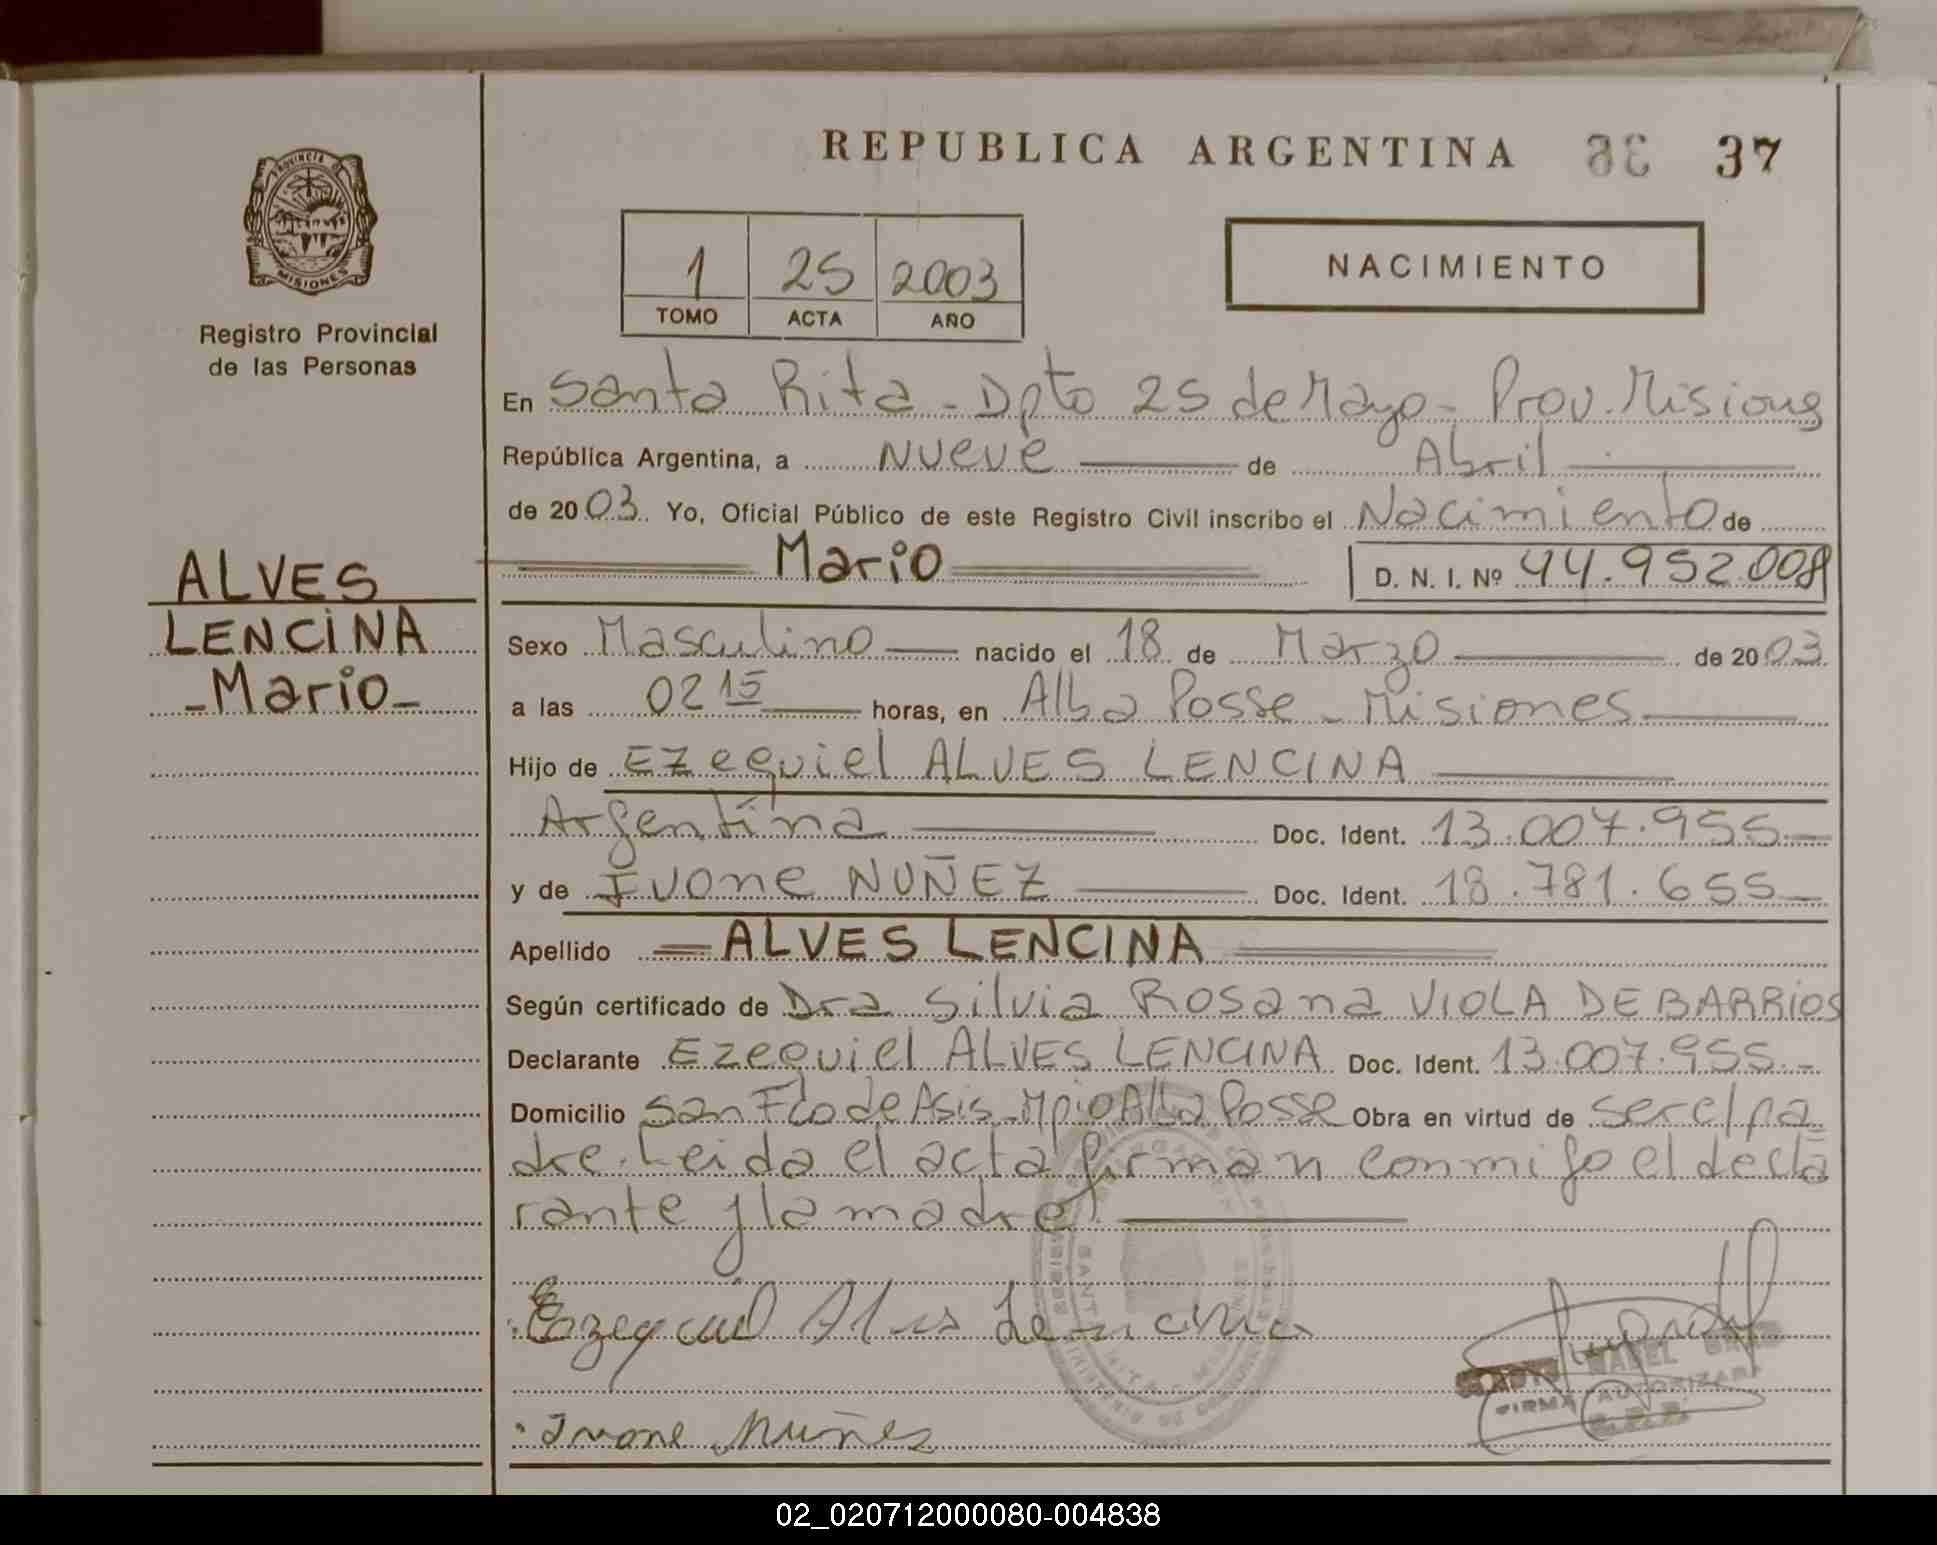 REPUBLICA ARGENTINA 36 37
PROVINCIA DE
MISIONES
Registro Provincial
de las Personas
1 25 2003
TOMO ACTA AÑO
NACIMIENTO
En Santa Rita - Dpto 25 de Mayo - Prov. Misiones
República Argentina, a Nueve de Abril
de 2003. Yo, Oficial Público de este Registro Civil inscribo el Nacimiento de
Mario D. N. I. Nº 44.952.008
ALVES
LENCINA
-Mario-
Sexo Masculino nacido el 18 de Marzo de 2003
a las 02 15 horas, en Alba Posse - Misiones
Hijo de Ezequiel ALVES LENCINA
Argentina Doc. Ident. 13.007.955-
y de Ivone NUÑEZ Doc. Ident. 18.781.655-
Apellido ALVES LENCINA
Según certificado de Dra Silvia Rosana VIOLA DE BARRIOS
Declarante Ezequiel ALVES LENCINA Doc. Ident. 13.007.955.-
Domicilio San Fco de Asis - Mpio Alba Posse Obra en virtud de ser el pa
dre. Leida el acta firman conmigo el decla
rante y la madre
Ezequiel Alves Lencina
FIRMA AUTORIZADA
R. P. P.
Ivone Nuñes
02_020712000080-004838